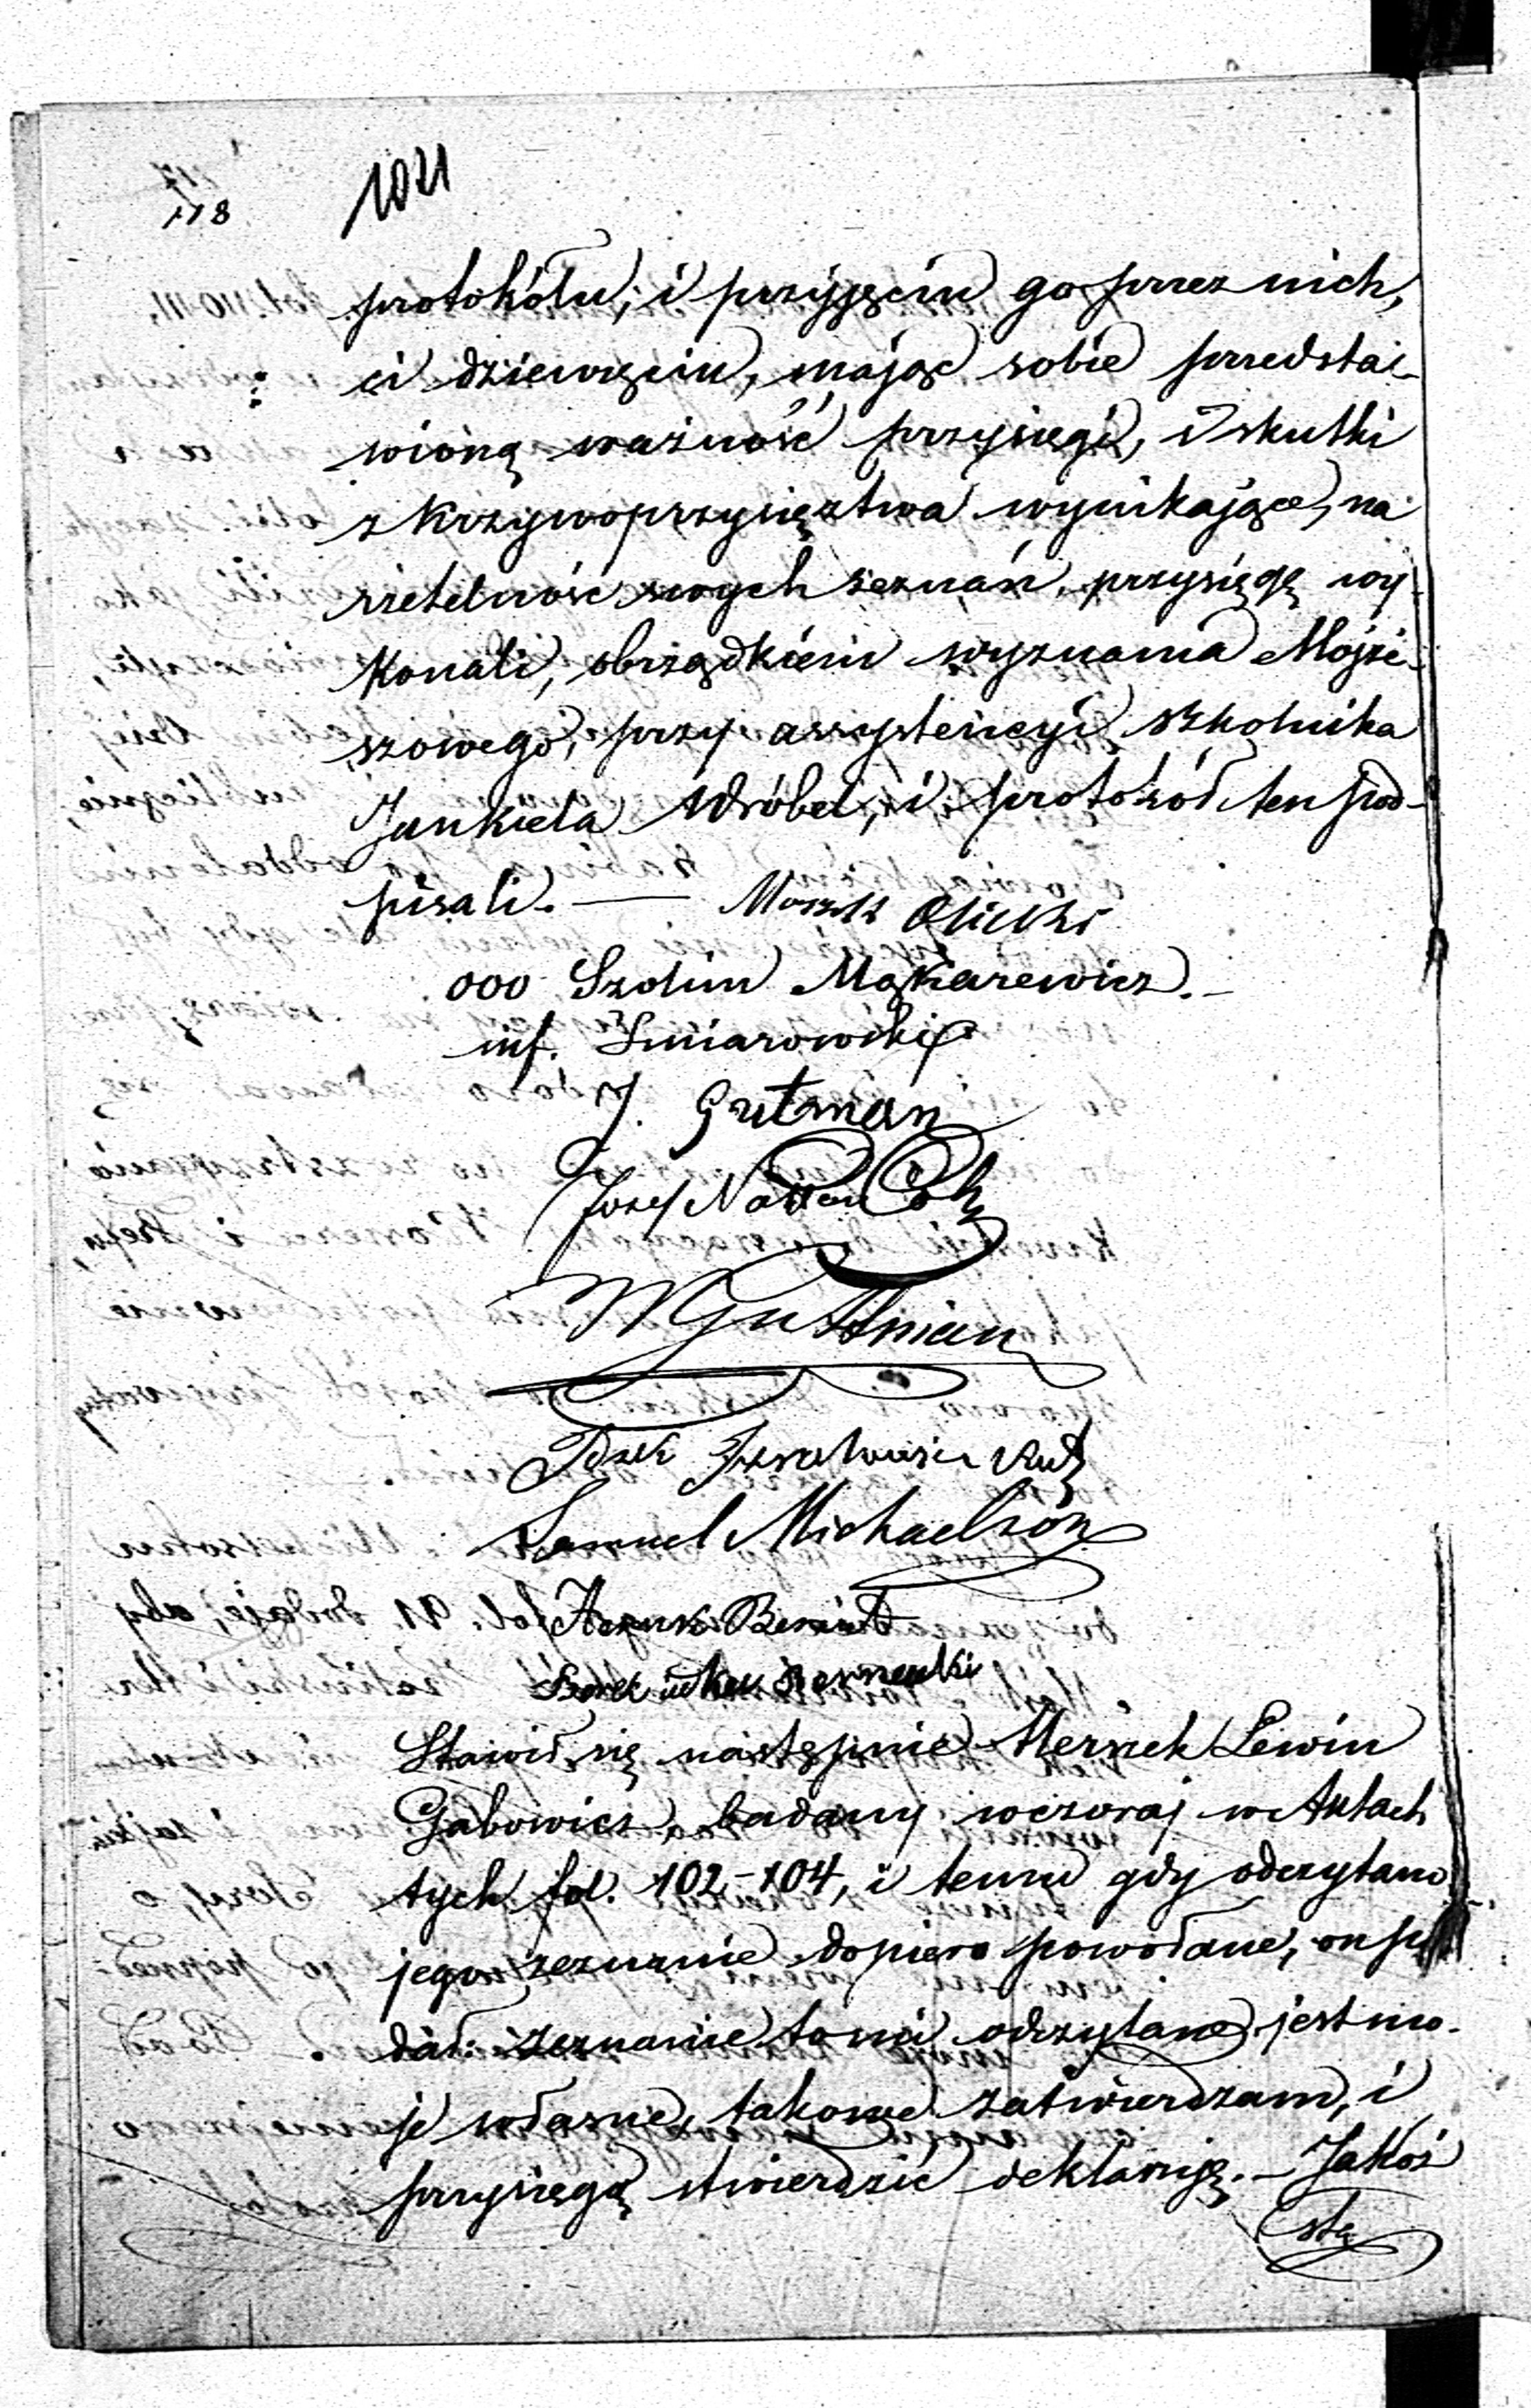 118
1021
protokółu, i przyjęciu go przez nich,
ci dziewięciu, mając sobie przedsta-
wioną ważność przysięgi, i skutki
z krzywoprzysięztwa wynikające, na
rzetelność swych zeznań, przysięgę wy-
konali, obrządkiem wyznania Mojże-
szowego, przy assystencyi szkolnika
Jankiela Wróbel, i protokół ten pod-
pisali. — Moszk
000 Szolim Makarewicz. —
inf. Smiarowski
J. Gutman
Josef Natan
M Guttman
Samuel Michaelson
Stawił się następnie Mersiek Lewin
Gabowicz, badany wczoraj w Aktach
tych fol. 102-104, i temu gdy odczytano
jego zeznanie dopiero powołane, on po
dał: zeznanie to mi odczytane, jest mo-
je własne, takowe zatwierdzam, i
przysięgą stwierdzić deklaruję. — Jakoż
stą